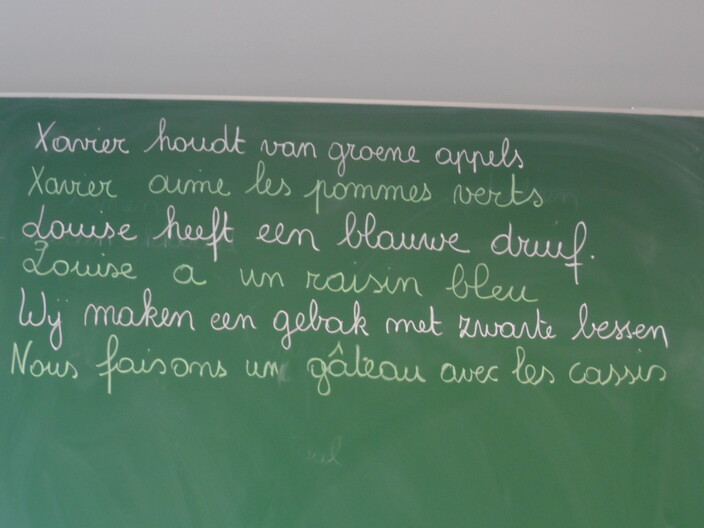 Xavier houdt van groene appels
Xavier aime les pommes verts
Louise heeft een blauwe druif.
Louise a un raisin bleu
Wij maken een gebak met zwarte bessen
Nous faisons un gâteau avec les cassis